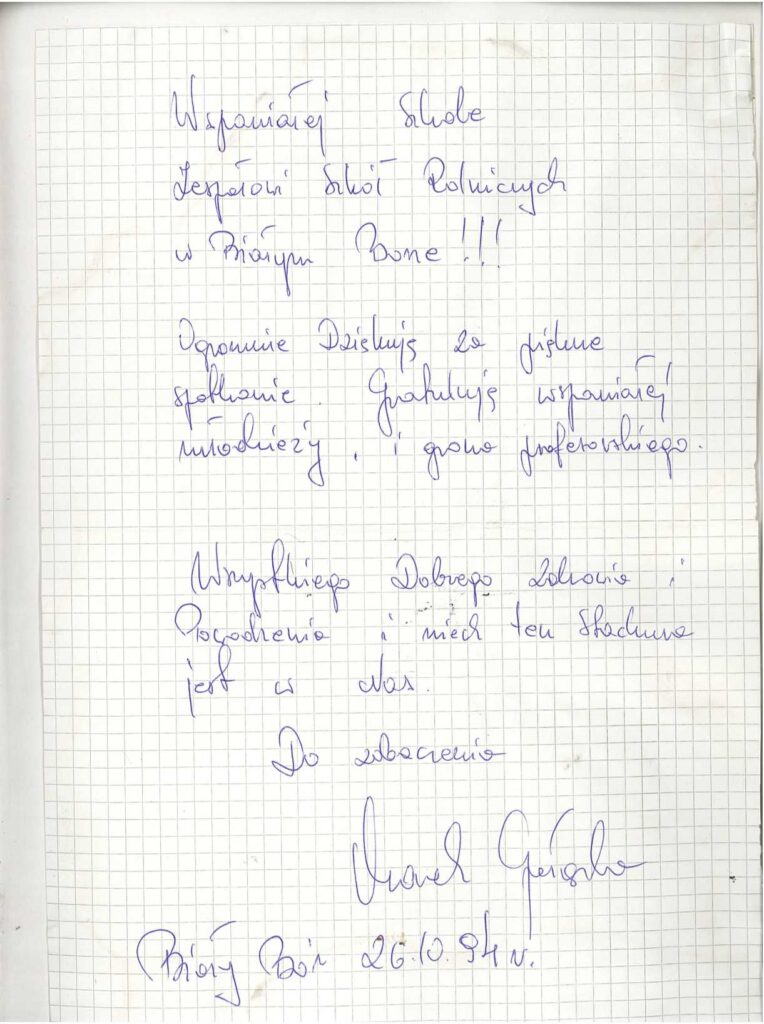 Wspaniałej Szkole
Zespołowi Szkół Rolniczych
w Białym Borze!!!
Ogromnie Dziękuję za piękne
spotkanie. Gratuluję wspaniałej
młodzieży, i grona profesorskiego.
Wszystkiego Dobrego zdrowia i
Powodzenia i niech ten Stachura
jest w Nas.
Do zobaczenia
Marek Gałązka
Biały Bór 26.10.94 r.